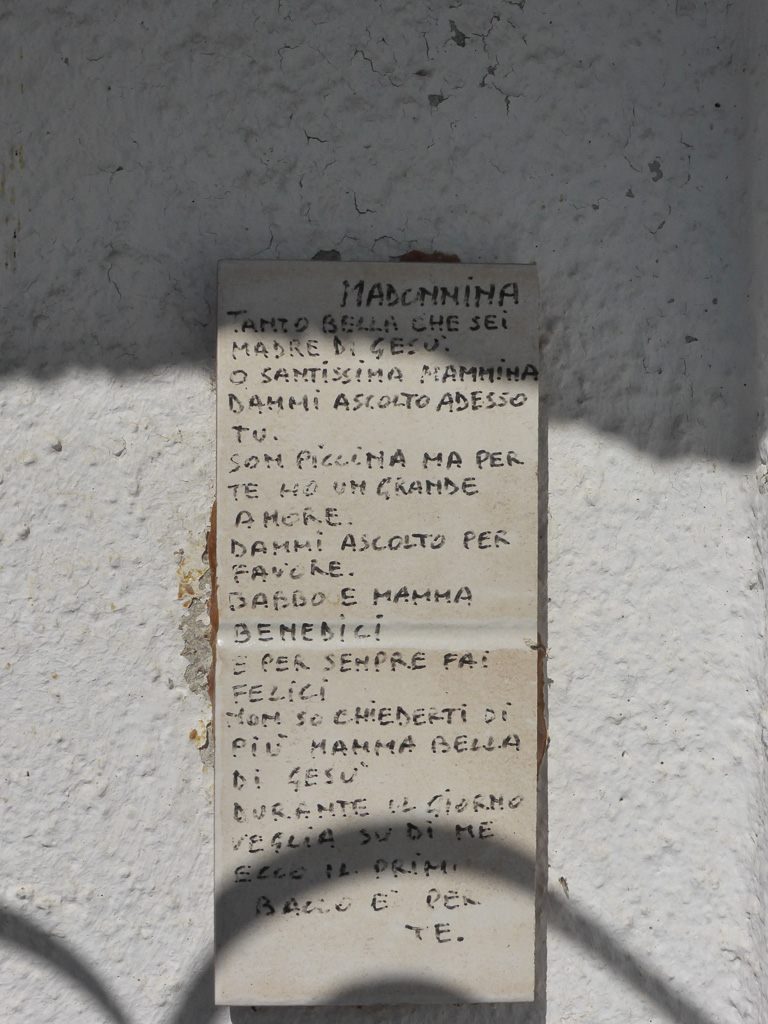 MADONNINA
TANTO BELLA CHE SEI
MADRE DI GESU'.
O SANTISSIMA MAMMINA
DAMMI ASCOLTO ADESSO
TU.
SON PICCINA MA PER
TE HO UN GRANDE
AMORE.
DAMMI ASCOLTO PER
FAVORE.
BABBO E MAMMA
BENEDICI
E PER SEMPRE FAI
FELICI
NON SO CHIEDERTI DI
PIU' MAMMA BELLA
DI GESU'
DURANTE IL GIORNO
VEGLIA SU DI ME
ECCO IL
BACIO E' PER
TE.